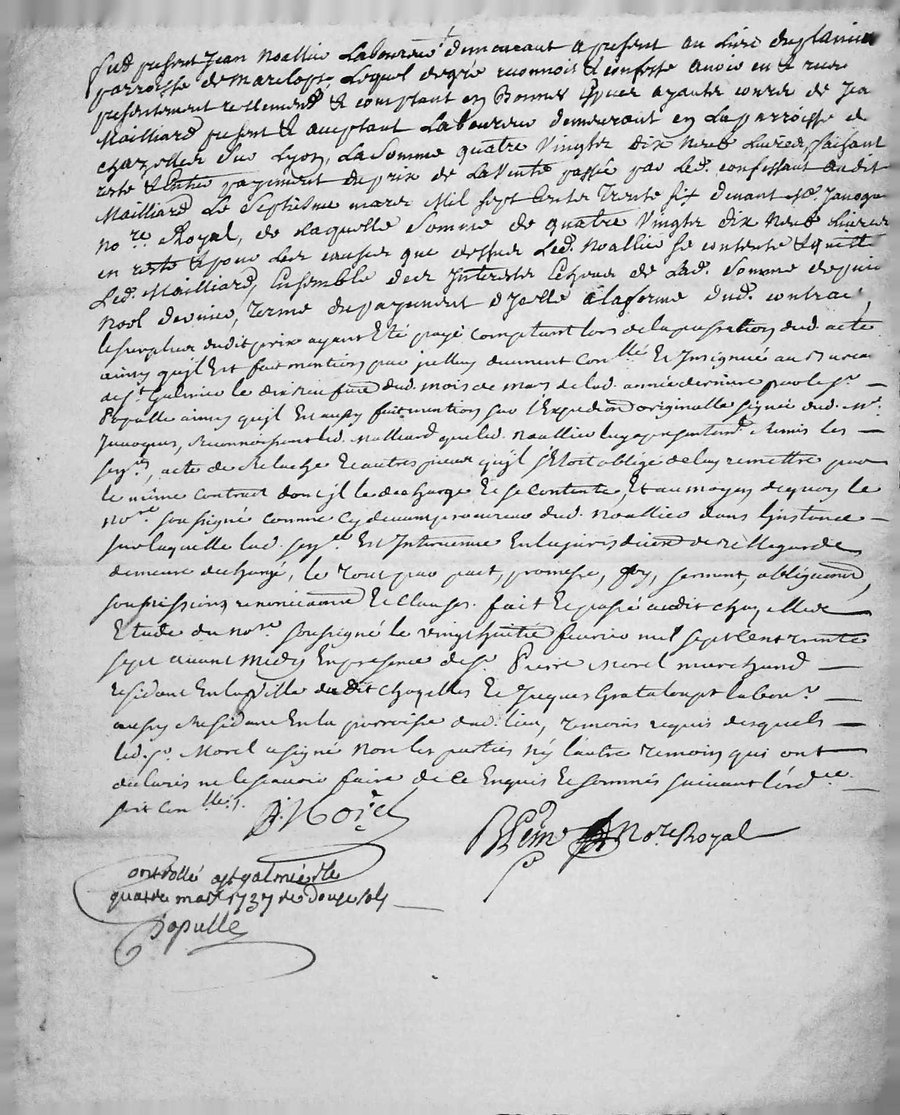 fut présent Jean Noallie Laboureur demeurant a présent au Lieu
parroisse de Lequel degrée reconnoit & confesse avoir eu & receu
présentement reellement & comptant en Bonnes Espèces ayants cours de Jean
Mailliard présent & acceptant Laboureur demeurant en La parroisse de
chazelles sur Lyon, La Somme quatre vingts dix neuf Livres, faisant
reste & Entier payement du prix de La vente passée par Led. confessant audit
Mailliard Le Septième mars Mil Sept Cents Trente Six devant Me. Janoque
No.re Royal, de Laquelle Somme de quatre vingts dix neuf Livres
en reste & pour Les causes que dessus Led. Noallie Se contente & quitte
Led. Mailliard, Ensemble des Interests Echeus de Lad. Somme depuis
Noel dernier, Terme du payement d'Icelle a la forme dud. contrat,
le surplus dudit prix ayant Eté payé comptant lors de la passation dud. acte
ainsy qu'jl Est fait mention par jcelluy duement Con.llé Et Insignué au Bureau
de St Galmier le dud. mois de mars de lad. année dernière par le Sr.
Populle ainsy qu'jl Est aussy fait mention sur l'Expedion originalle signée dud. Me.
Janoque, Reconnoissant led. Malliard que led. Noallie luy a présentem.t Remis les
acte de Relache Et autres pieces qu'jl s'Etoit obligé de luy remettre par
le même contract dont jl le decharge Et se contente, Et au moyen dequoy le
No.re soussigné comme cy devant procureur dud. Noallie dans l'instance
sur laquelle lad. Est Intervenue En la jurisdiction de Bellegarde
demeure dechargé, le Tout par pact, promesse, foy, serment, obligaons,
soumissions renonciaons Et clauses. fait Et passé audit chazelles
Etude du No.re soussigné le vingt huitie février mil sept cent trente
sept avant midy En presence de Sr. Pierre Morel marchand
residant En la ville dudit chazelles Et Jacques Grataloup labour.
aussy Residant En la parroisse dud. lieu, Temoins requis desquels
led. Sr. Morel a signé non les parties ny l'autre Temoin qui ont
declarés ne le scavoir faire de Ce Enquis Et sommés suivant l'ord.ce
soit Con.llé.
P. Morel
No.re Royal
Controllé a St galmier le
quatre mars 1737 Re douze sols
Populle